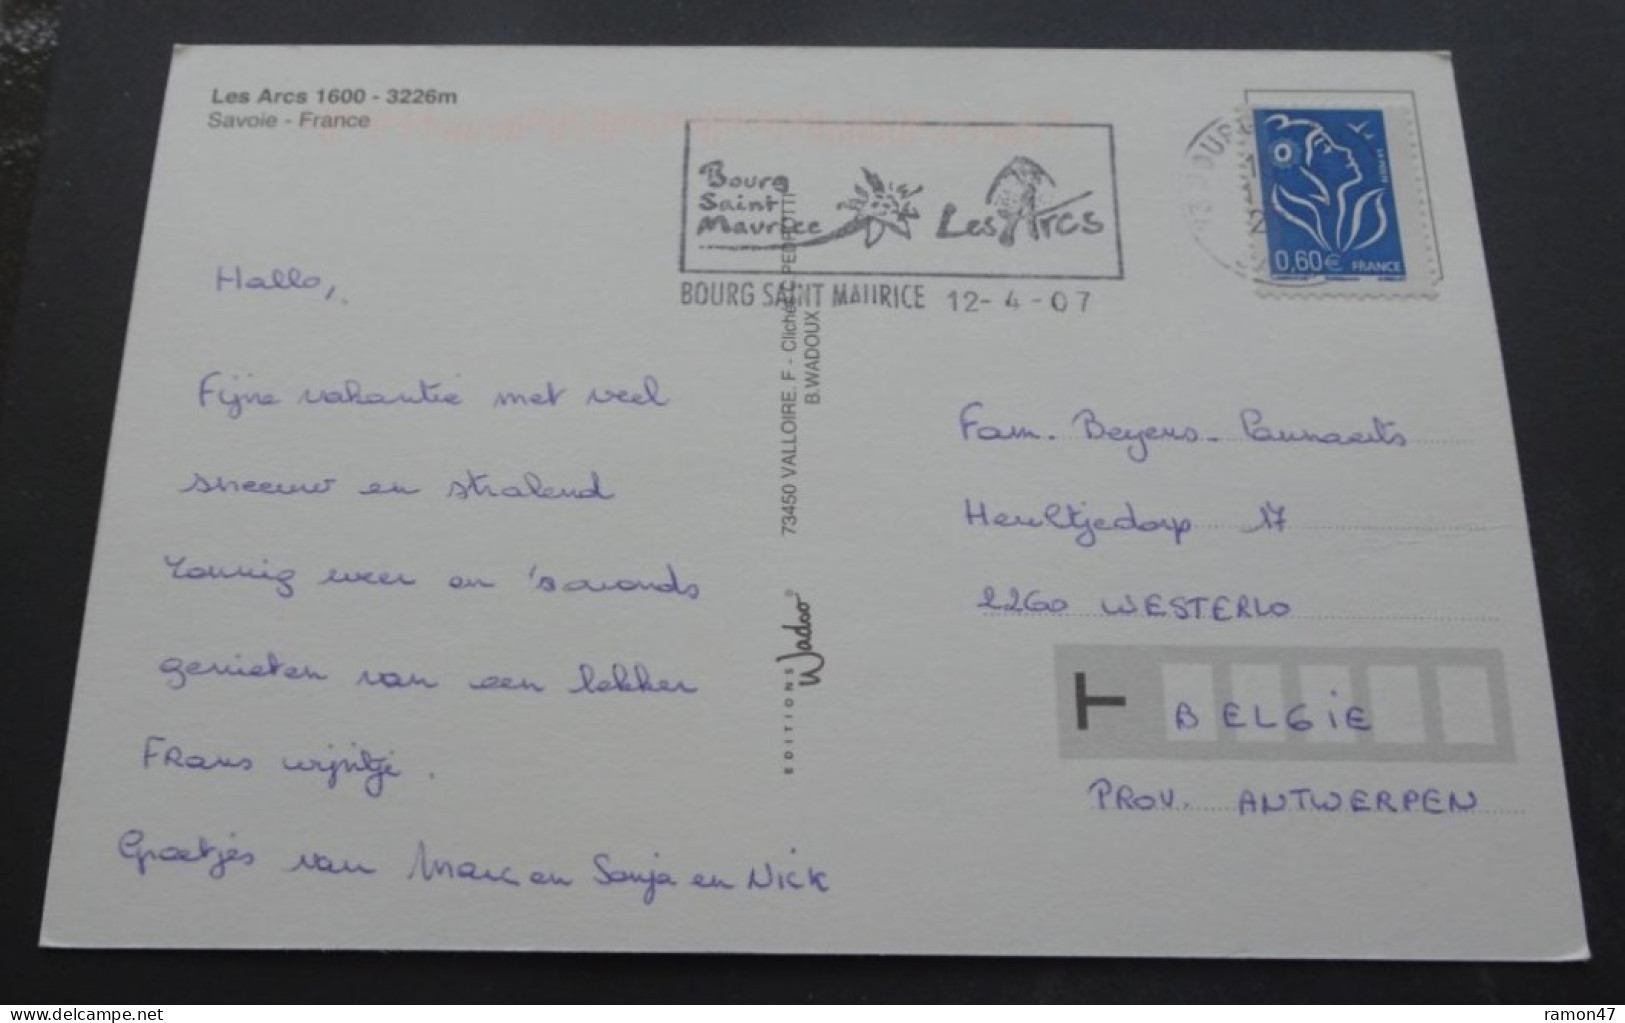 Les Arcs 1600 - 3226m
Savoie - France
Bourg
Saint
Maurice
Les Arcs
BOURG SAINT MAURICE 12-4-07
0,60€ FRANCE
Hallo,
Fijne vakantie met veel
sneeuw en stralend
zonnig weer en 's avonds
genieten van een lekker
Frans wijntje.
Groetjes van Marc en Sonja en Nick
73450 VALLOIRE. F - Cliché C. PEDROTTI
B.WADOUX
EDITIONS Wadoo ®
Fam. Beyens-
Heultjedorp 17
2260 WESTERLO
T BELGiE
PROV. ANTWERPEN
delcampe.net
ramon47